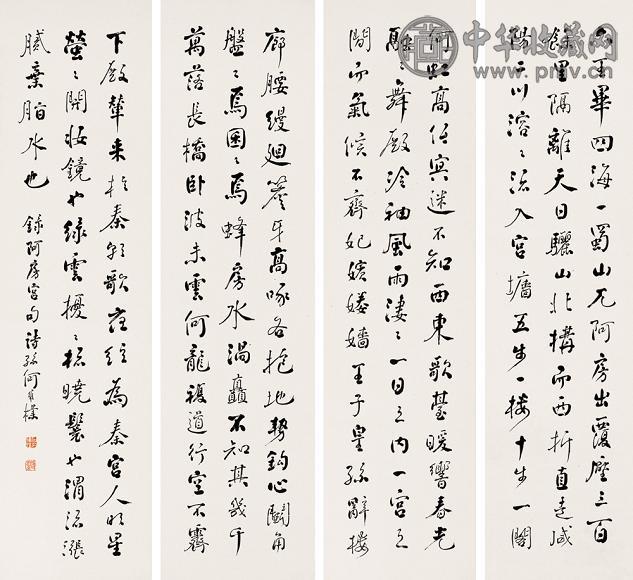 六王畢四海一蜀山兀阿房出覆壓三百
餘里隔離天日驪山北構而西折直走咸
陽二川溶〻流入宮墻五步一樓十步一閣
何虹高低冥迷不知西東歌臺暖響春光
融〻舞殿冷袖風雨淒〻一日之內一宮之
間而氣候不齊妃嬪媵嬙王子皇孫辭樓
廊腰縵廻簷牙高啄各抱地勢鈎心鬪角
盤〻焉囷〻焉蜂房水渦矗不知其幾千
萬落長橋臥波未雲何龍複道行空不霽
下殿輦來於秦朝歌夜絃為秦宮人明星
熒〻開妝鏡也綠雲擾〻梳曉鬟也渭流漲
膩棄脂水也 錄阿房宮句 詩孫何維樸
中华收藏网
www.pmv.cn